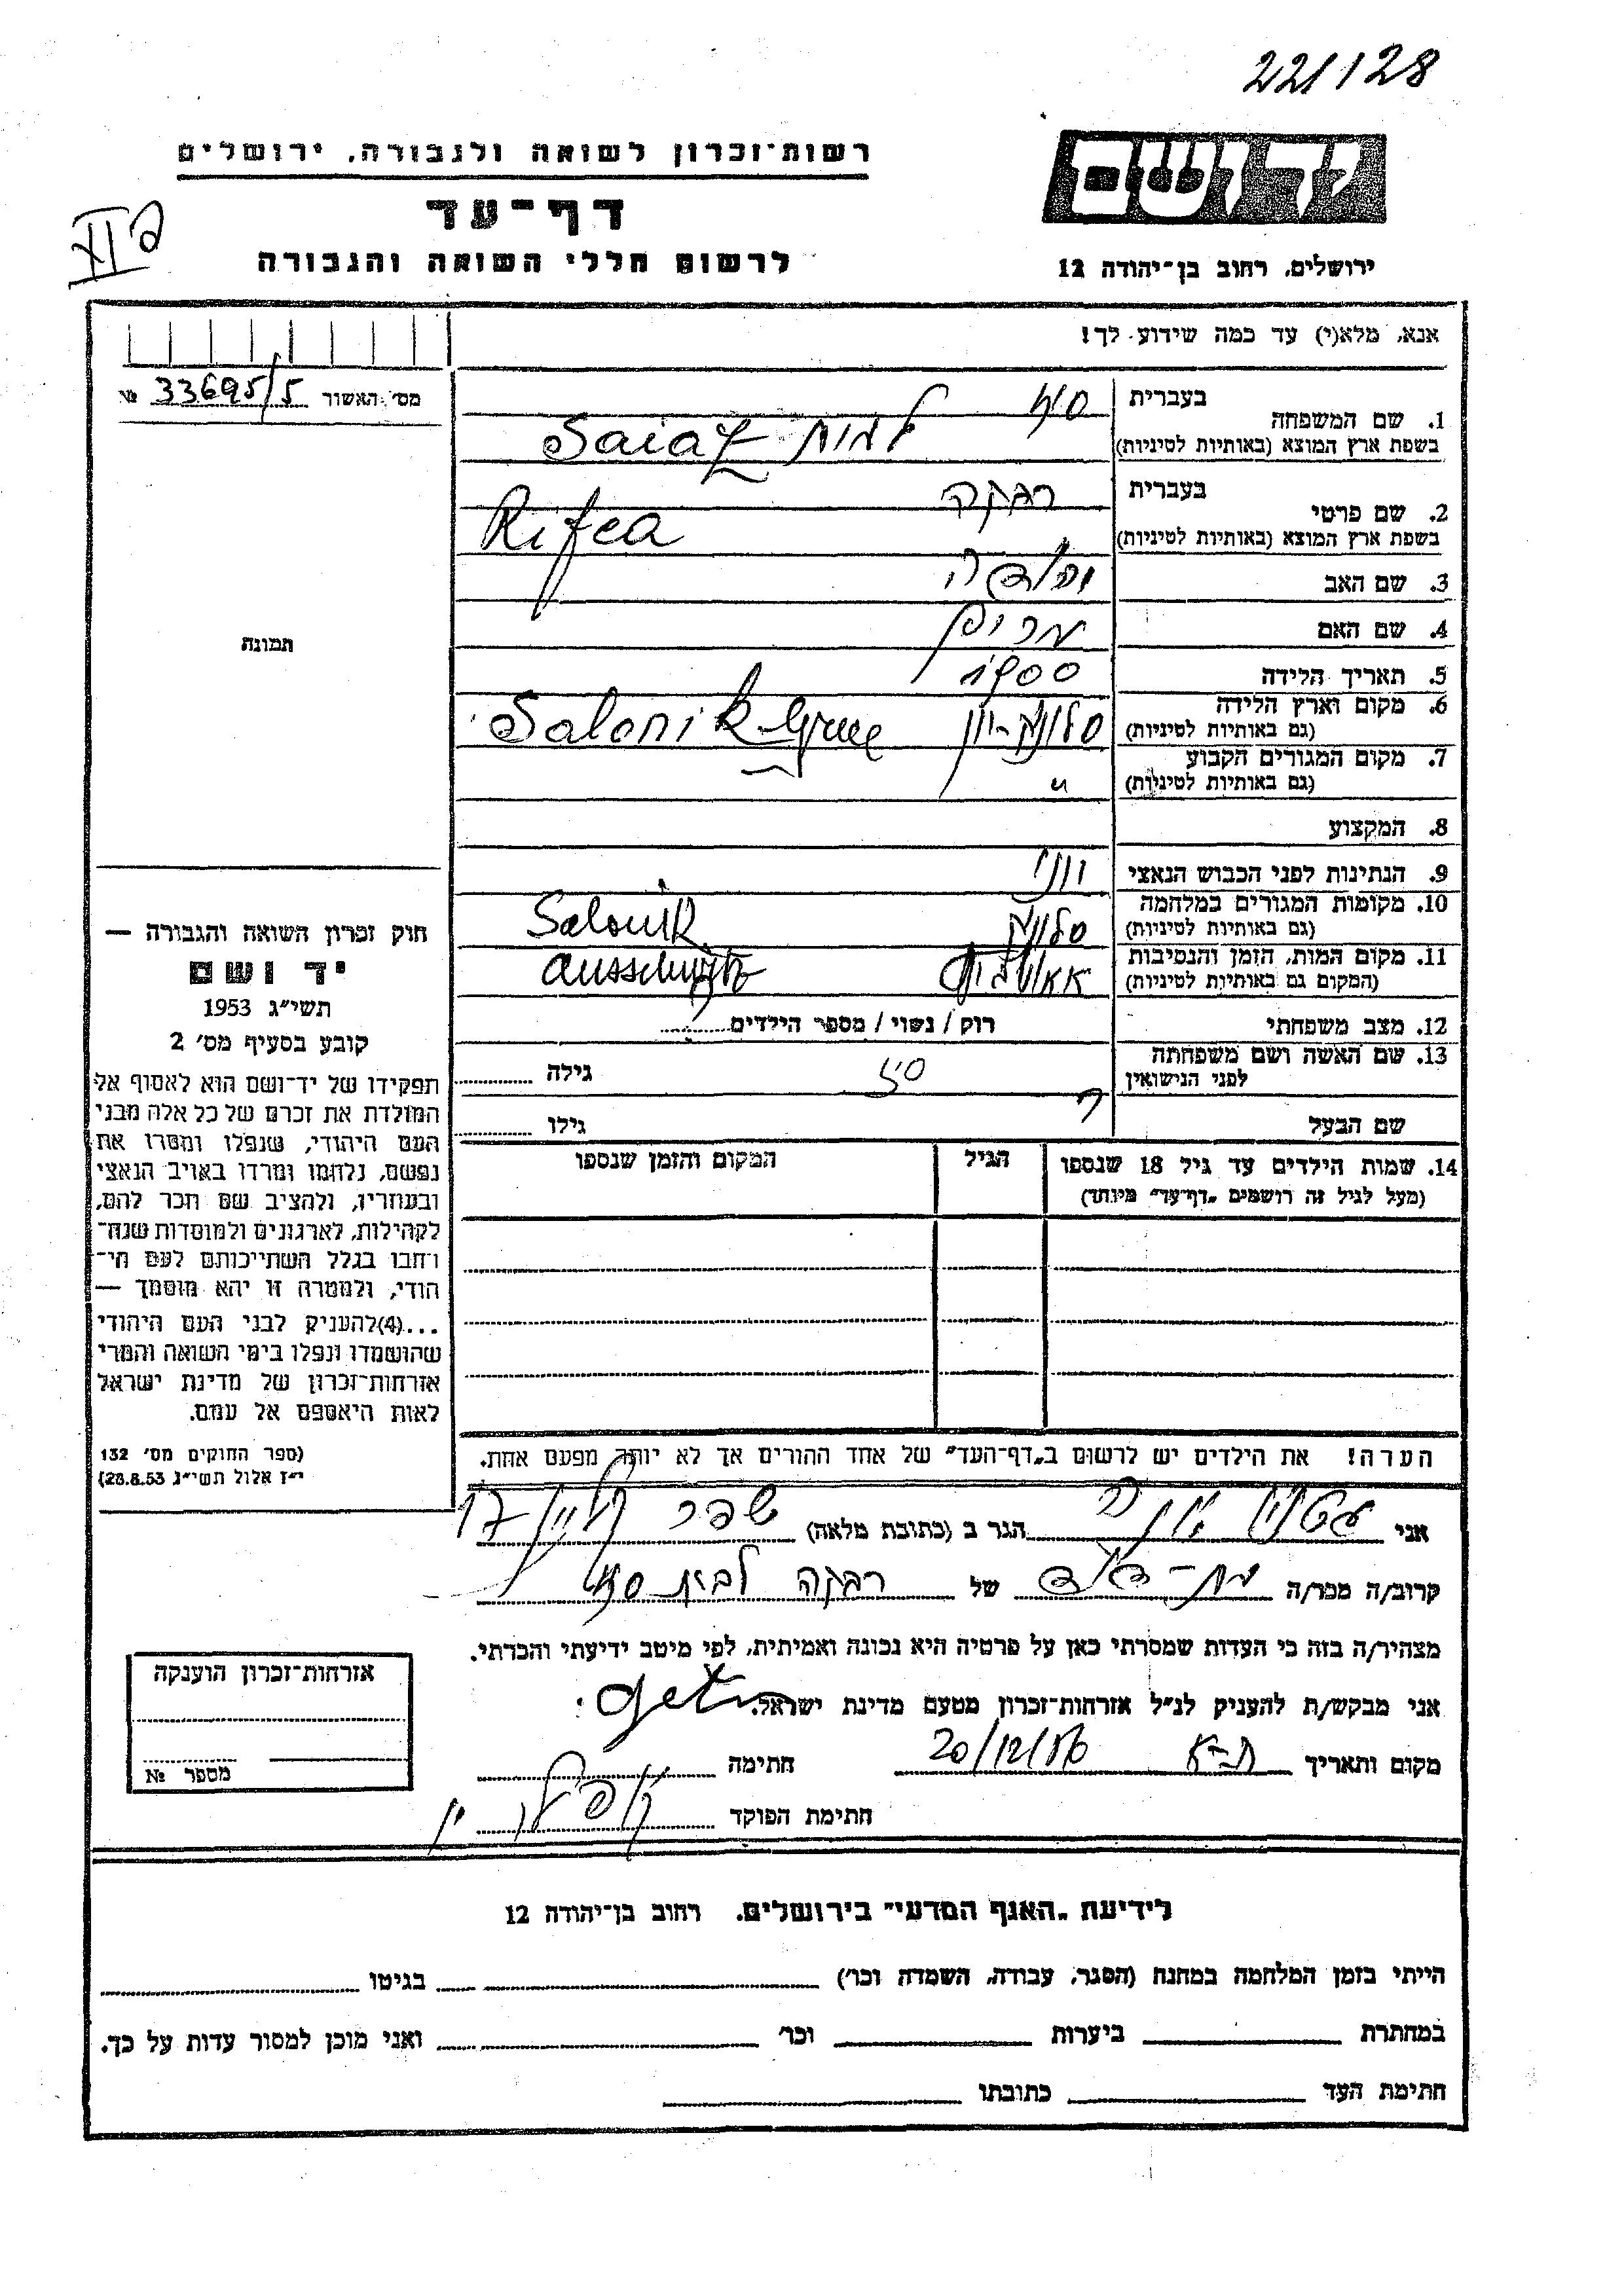 221/128
רשות־זכרון לשואה ולגבורה, ירושלים
דף־עד
לרשום חללי השואה והגבורה
יד ושם
ירושלים, רחוב בן־יהודה 12
אנא, מלא(י) עד כמה שידוע לך!
מס׳ האשור 33695/5 №
1. שם המשפחה
בעברית
בשפת ארץ המוצא (באותיות לטיניות) Saiaz
2. שם פרטי
בעברית רבקה
בשפת ארץ המוצא (באותיות לטיניות) Rifca
3. שם האב
4. שם האם מרים
5. תאריך הלידה 1900
6. מקום וארץ הלידה
(גם באותיות לטיניות) סלוניק-יוון Salonik
7. מקום המגורים הקבוע
(גם באותיות לטיניות) "
8. המקצוע
9. הנתינות לפני הכבוש הנאצי יווני
10. מקומות המגורים במלחמה
(גם באותיות לטיניות) סלוניק Salonik
11. מקום המות, הזמן והנסיבות
(המקום גם באותיות לטיניות)
12. מצב משפחתי רוק / נשוי / מספר הילדים
13. שם האשה ושם משפחתה
לפני הנישואין גילה
שם הבעל גילו
14. שמות הילדים עד גיל 18 שנספו הגיל המקום והזמן שנספו
(מעל לגיל זה רושמים „דף־עד״ מיוחד)
הערה! את הילדים יש לרשום ב„דף־העד״ של אחד ההורים אך לא יותר מפעם אחת.
תמונה
חוק זכרון השואה והגבורה —
יד ושם
תשי״ג 1953
קובע בסעיף מס׳ 2
תפקידו של יד־ושם הוא לאסוף אל
המולדת את זכרם של כל אלה מבני
העם היהודי, שנפלו ומסרו את
נפשם, נלחמו ומרדו באויב הנאצי
ובעוזריו, ולהציב שם וזכר להם,
לקהילות, לארגונים ולמוסדות שנח־
רבו בגלל השתייכותם לעם הי־
הודי, ולמטרה זו יהא מוסמך —
...(4)להעניק לבני העם היהודי
שהושמדו ונפלו בימי השואה והמרי
אזרחות־זכרון של מדינת ישראל
לאות היאספם אל עמם.
(ספר החוקים מס׳ 132
י״ז אלול תשי״ג 28.8.53)
אני הגר ב (כתובת מלאה)
קרוב/ה מכר/ה של רבקה לבית
מצהיר/ה בזה כי העדות שמסרתי כאן על פרטיה היא נכונה ואמיתית, לפי מיטב ידיעתי והכרתי.
אני מבקש/ת להעניק לנ״ל אזרחות־זכרון מטעם מדינת ישראל.
מקום ותאריך ת-א 20/12/56 חתימה
חתימת הפוקד
אזרחות־זכרון הוענקה
מספר №
לידיעת „האגף המדעי״ בירושלים. רחוב בן־יהודה 12
הייתי בזמן המלחמה במחנה (הסגר, עבודה, השמדה וכו׳) בגיטו
במחתרת ביערות וכו׳ ואני מוכן למסור עדות על כך.
חתימת העד כתובתו